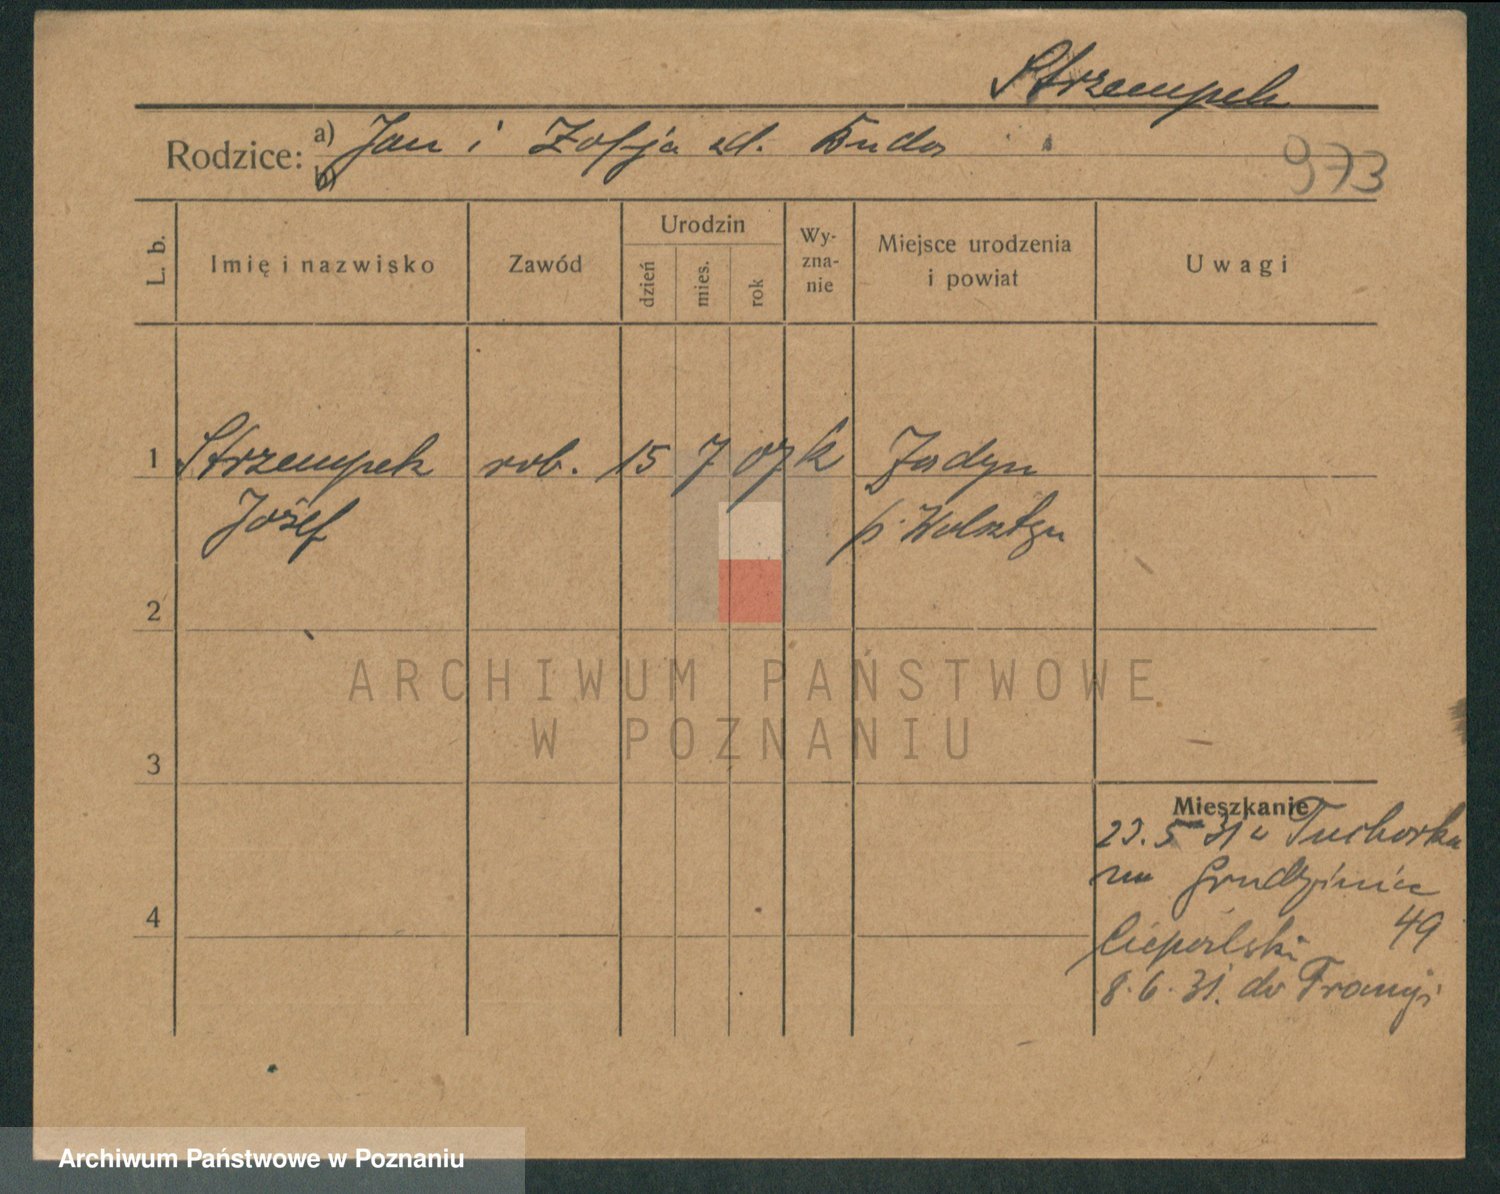 Strzempek
Rodzice: a) Jan i Zofja zd. Kuda
b)
973
L. b.
Imię i nazwisko
Zawód
Urodzin
dzień
mies.
rok
Wy-
zna-
nie
Miejsce urodzenia
i powiat
Uwagi
1 Strzempek rob. 15 7 07 k Jadyn
Józef p. Wolsztyn
2
3
4
ARCHIWUM PAŃSTWOWE
W POZNANIU
Mieszkanie
23.5 31 z Tuchorka
na
49
8.6.31. do Francji
Archiwum Państwowe w Poznaniu